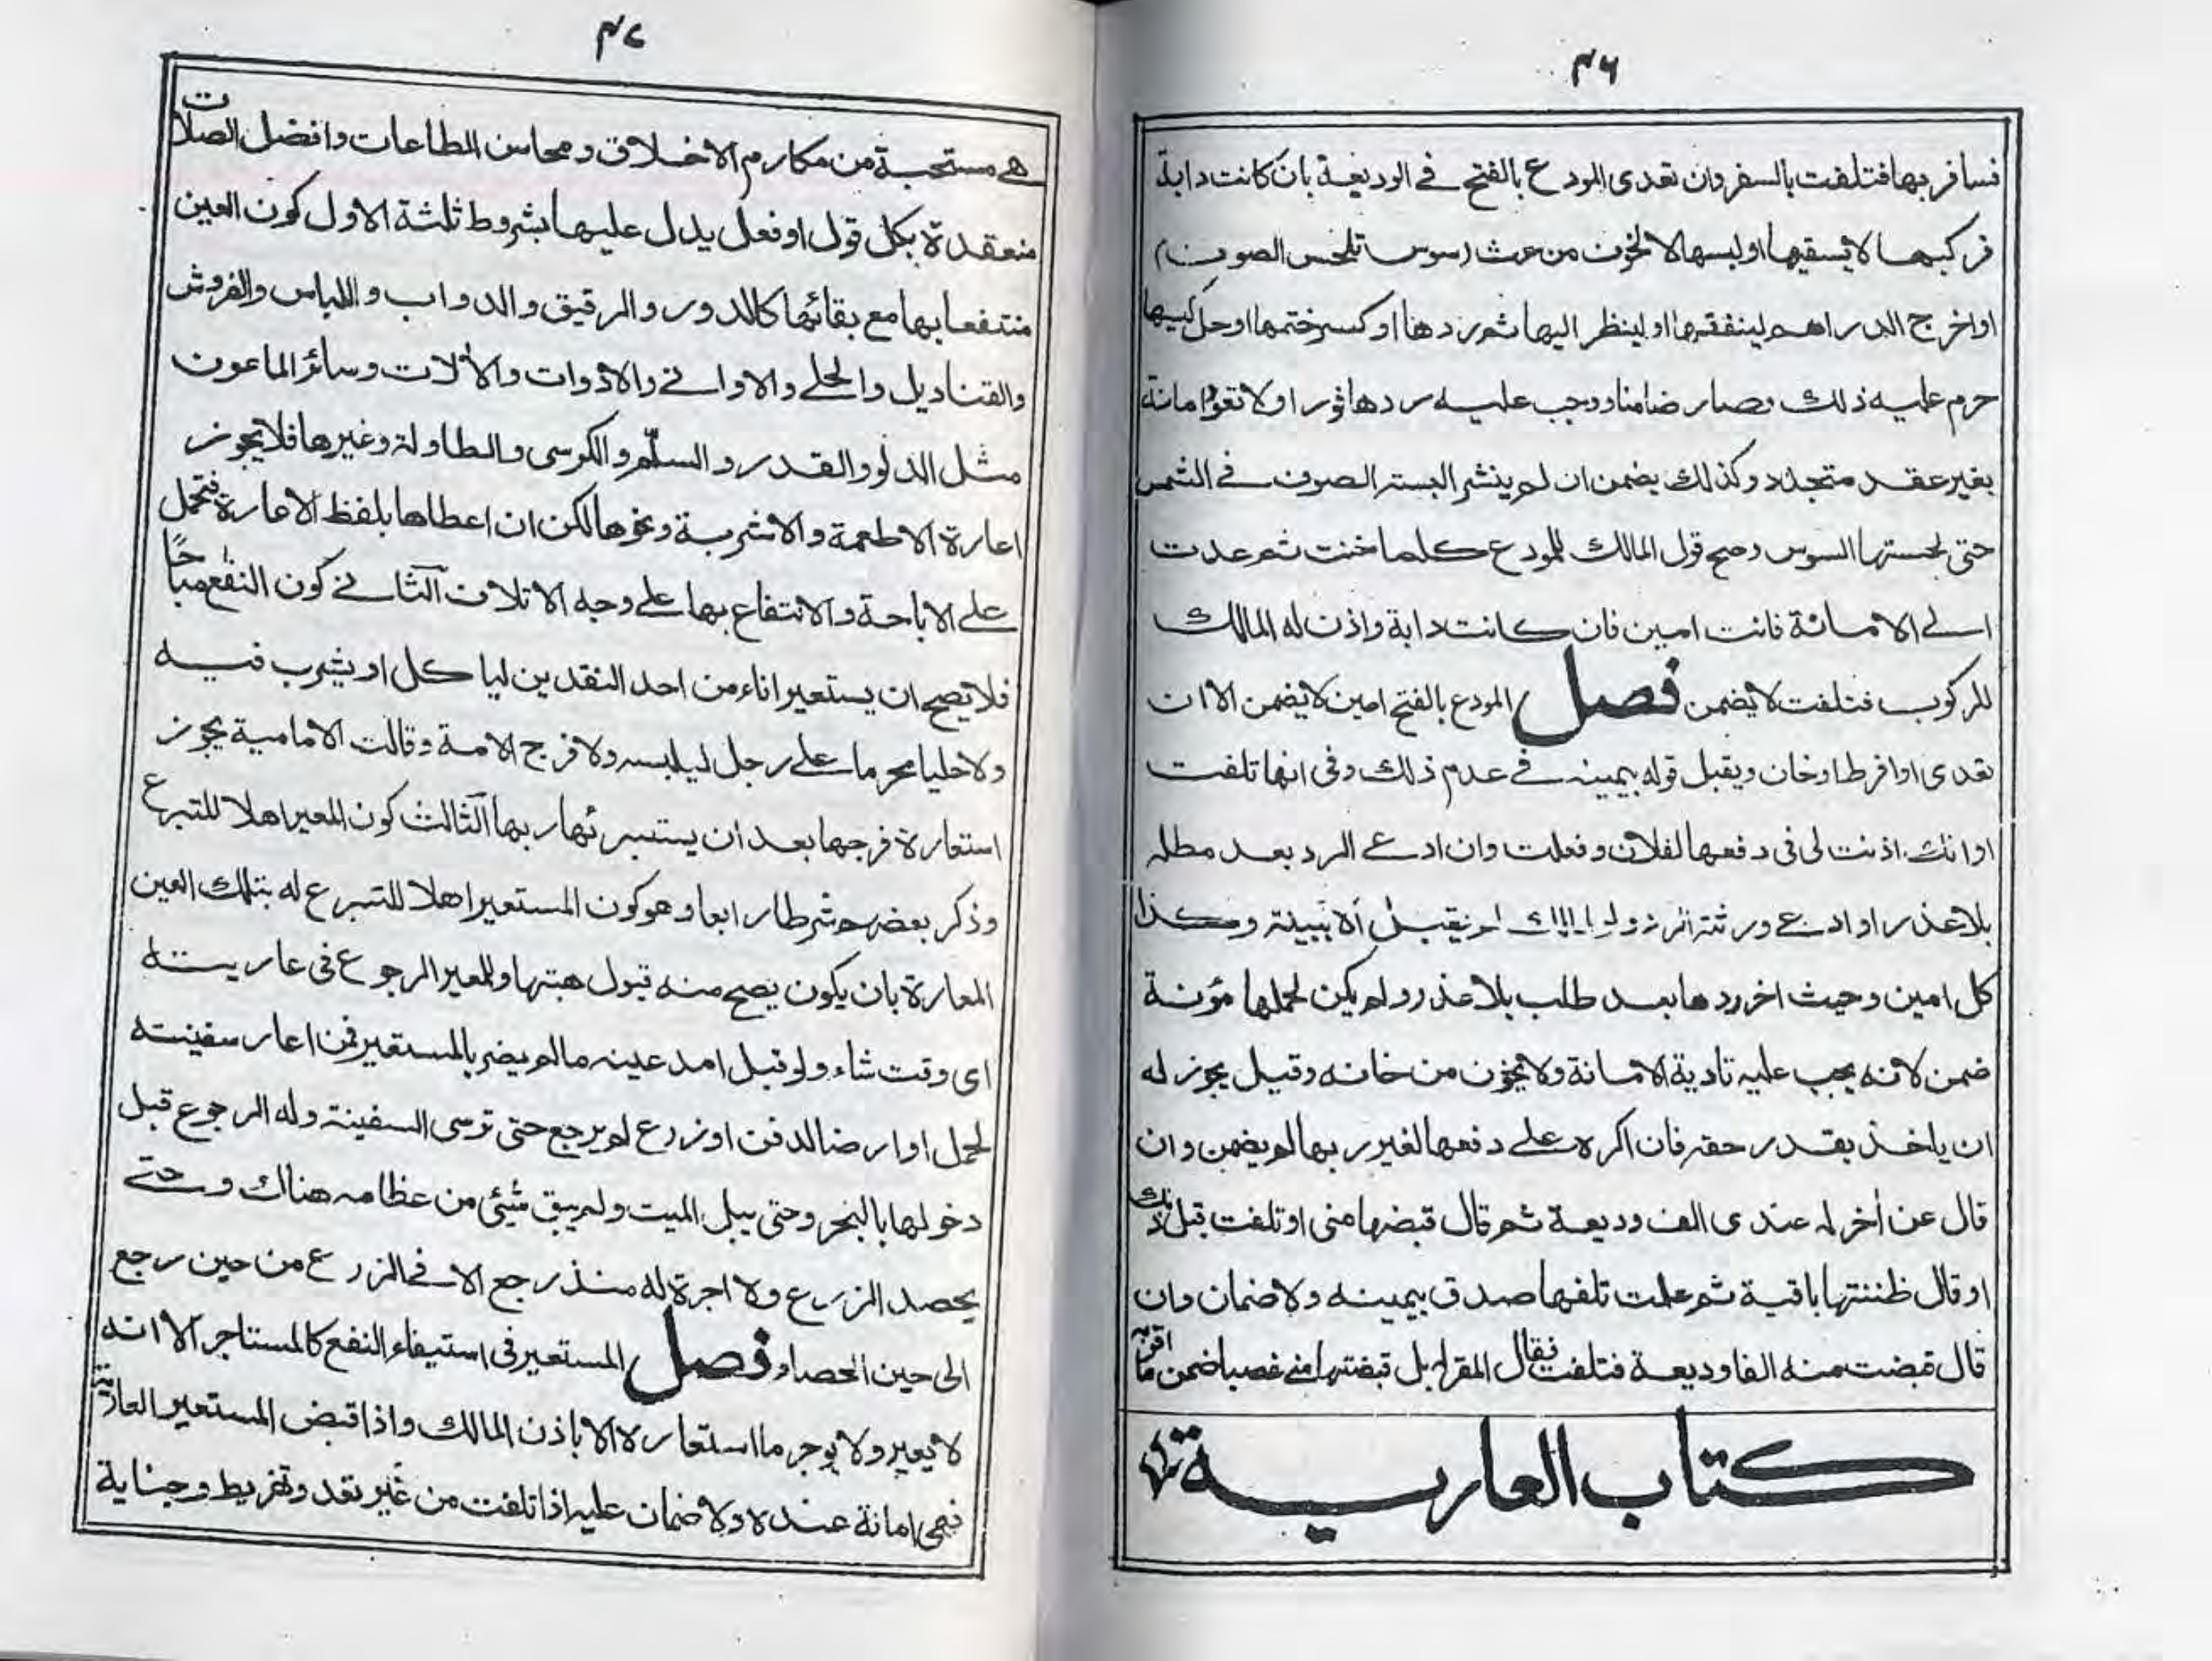 ۴۶
فسافر بها فتلفت بالسفر وان تعدى المودع بالفتح في الوديعة بان كانت دابة
فركبها لا يسقيها او لبسها لا لخوف من عث (سوس تلحس الصوف)
او اخرج الدراهم لينفقها او لينظر اليها ثم ردها او كسر ختمها او حل كيسها
حرم عليه ذلك وصار ضامنا ووجب عليه ردها فورا ولا تعود امانة
بغير عقد متجدد وكذلك يضمن ان لم ينشر البستر الصوف في الشمس
حتى لحستها السوس وصح قول المالك للمودع كلما خنت ثم عدت
الى الامانة فانت امين فان كانت دابة واذن له المالك
للركوب فتلفت لا يضمن فصل المودع بالفتح امين لا يضمن الا ان
تعدى او افرط او خان ويقبل قوله بيمينه في عدم ذلك وفى انها تلفت
او انك اذنت لى فى دفعها لفلان وفعلت وان ادعى الرد بعد مطله
بلا عذر او ادعى ورثته الرد ولو لم يقبل الا ببينة وكذا
كل امين وحيث اخر ردها بعد طلب بلا عذر ولم يكن لحملها مؤنة
ضمن لانه يجب عليه تادية الامانة ولا يخون من خانه وقيل يجوز له
ان ياخذ بقدر حقه فان اكره على دفعها لغير ربها لم يضمن وان
قال عن اخر له عندى الف وديعة ثم قال قبضها منى او تلفت قبل ذلك
او قال ظننتها باقية ثم علمت تلفها صدق بيمينه ولا ضمان وان
قال قبضت منه الفا وديعة فتلفت فيقال المقر له بل قبضتها منى غصبا ضمن ما اقر به
كتاب العارية
۴۷
هي مستحبة من مكارم الاخلاق ومحاسن الطاعات وافضل الصلات
منعقدة بكل قول او فعل يدل عليها بشروط ثلثة الاول كون العين
منتفعا بها مع بقائها كالدور والرقيق والدواب واللباس والفروش
والقناديل والحلي والاواني والادوات والألات وسائر الماعون
مثل الدلو والقدر والسلّم والكرسى والطاولة وغيرها فلا يجوز
اعارة الاطعمة والاشربة ونحوها لكن ان اعطاها بلفظ الاعارة فتحمل
على الاباحة والانتفاع بها على وجه الاتلاف الثاني كون النفع مباحًا
فلا يصح ان يستعير اناء من احد النقدين لياكل او يشرب فيه
ولا حليا محرما على رجل ليلبسه ولا فرج الامة وقالت الامامية يجوز
استعارة فرجها بعد ان يستبرئها ربها الثالث كون المعير اهلا للتبرع
وذكر بعضهم شرطا رابعا وهو كون المستعير اهلا للتبرع له بتلك العين
المعارة بان يكون يصح منه قبول هبتها وللمعير الرجوع فى عاريته
اى وقت شاء ولو قبل امد عينه ما لم يضر بالمستعير فمن اعار سفينته
لحمل او ارضا لدفن او زرع لم يرجع حتى ترسى السفينة وله الرجوع قبل
دخولها بالبحر وحتى يبل الميت ولم يبق شيئ من عظامه هناك وحتى
يحصد الزرع ولا اجرة له منذ رجع الا في الزرع من حين رجع
الى حين الحصاد فصل المستعير فى استيفاء النفع كالمستاجر الا انه
لا يعير ولا يوجر ما استعاره الا باذن المالك واذا قبض المستعير العارية
فهى امانة عنده ولا ضمان عليه اذا تلفت من غير تعد وتفريط وجناية